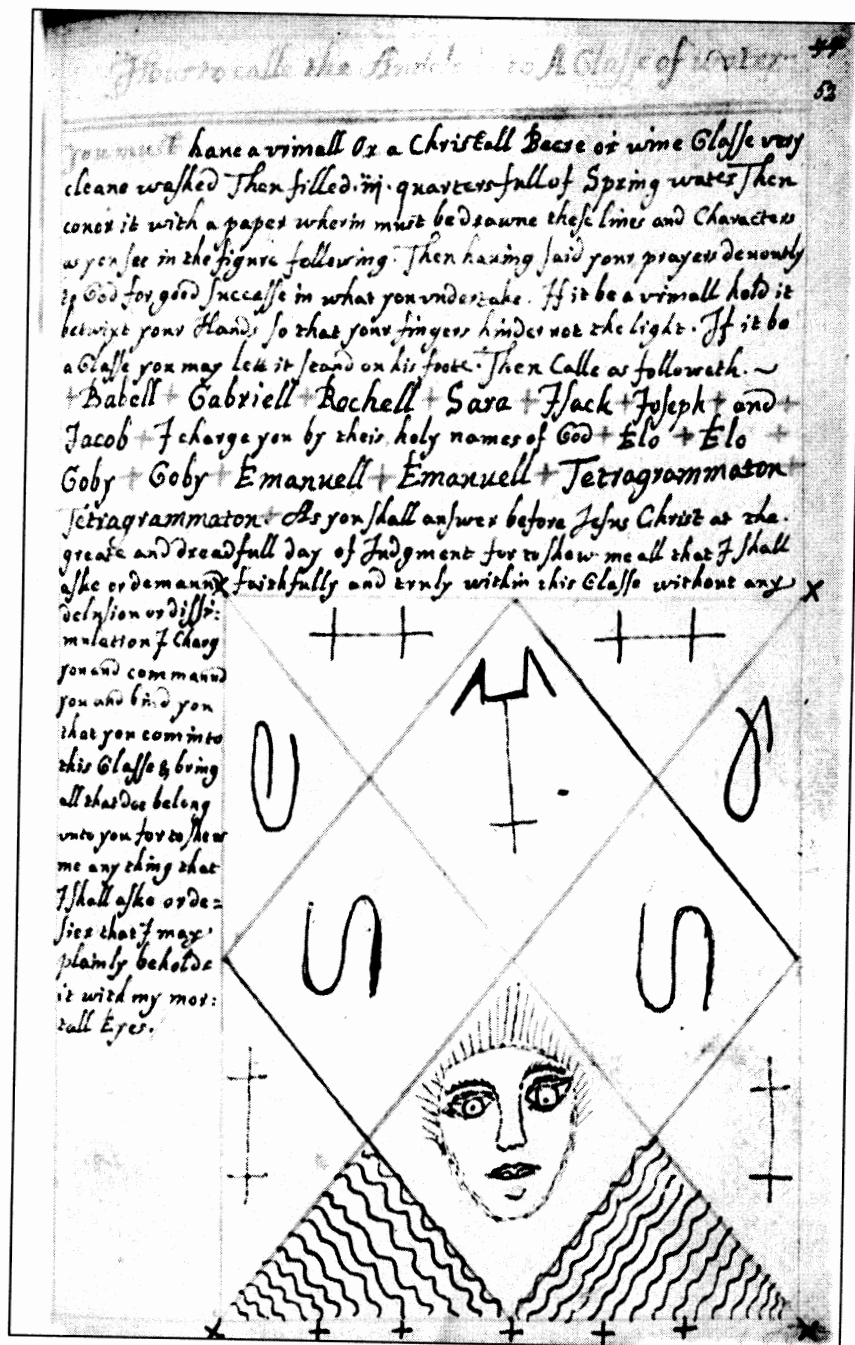 How to calle the to A Glasse of water
53
you must haue a vrinall Or a Christall Beere or wine Glasse very
cleane washed Then filled .iij. quarters full of Spring water Then
couer it with a paper wherin must be drawne these lines and Characters
as you see in the figure following. Then hauing said your prayers deuoutly
to God for good Successe in what you vndertake. If it be a vrinall hold it
betwixt your Hands so that your fingers hinder not the light. If it be
a Glasse you may lett it stand on his foote. Then Calle as followeth. ~
+ Babell + Gabriell + Rochell + Sara + Isack + Joseph + and +
Jacob + I charge you by theis holy names of God + Elo + Elo +
Goby + Goby + Emanuell + Emanuell + Tetragrammaton +
Tetragrammaton. As you shall answer before Jesus Christ at the
greate and dreadfull day of Judgment for to show me all that I shall
aske or demannd faithfully and truly within this Glasse without any
delusion or dissi:
mulation I Charg
you and commannd
you and bind you
that you com into
this Glasse & bring
all that doe belong
vnto you for to shew
me any thing that
I shall aske or de=
sier that I may
plainly beholde
it with my mor:
tall Eyes.